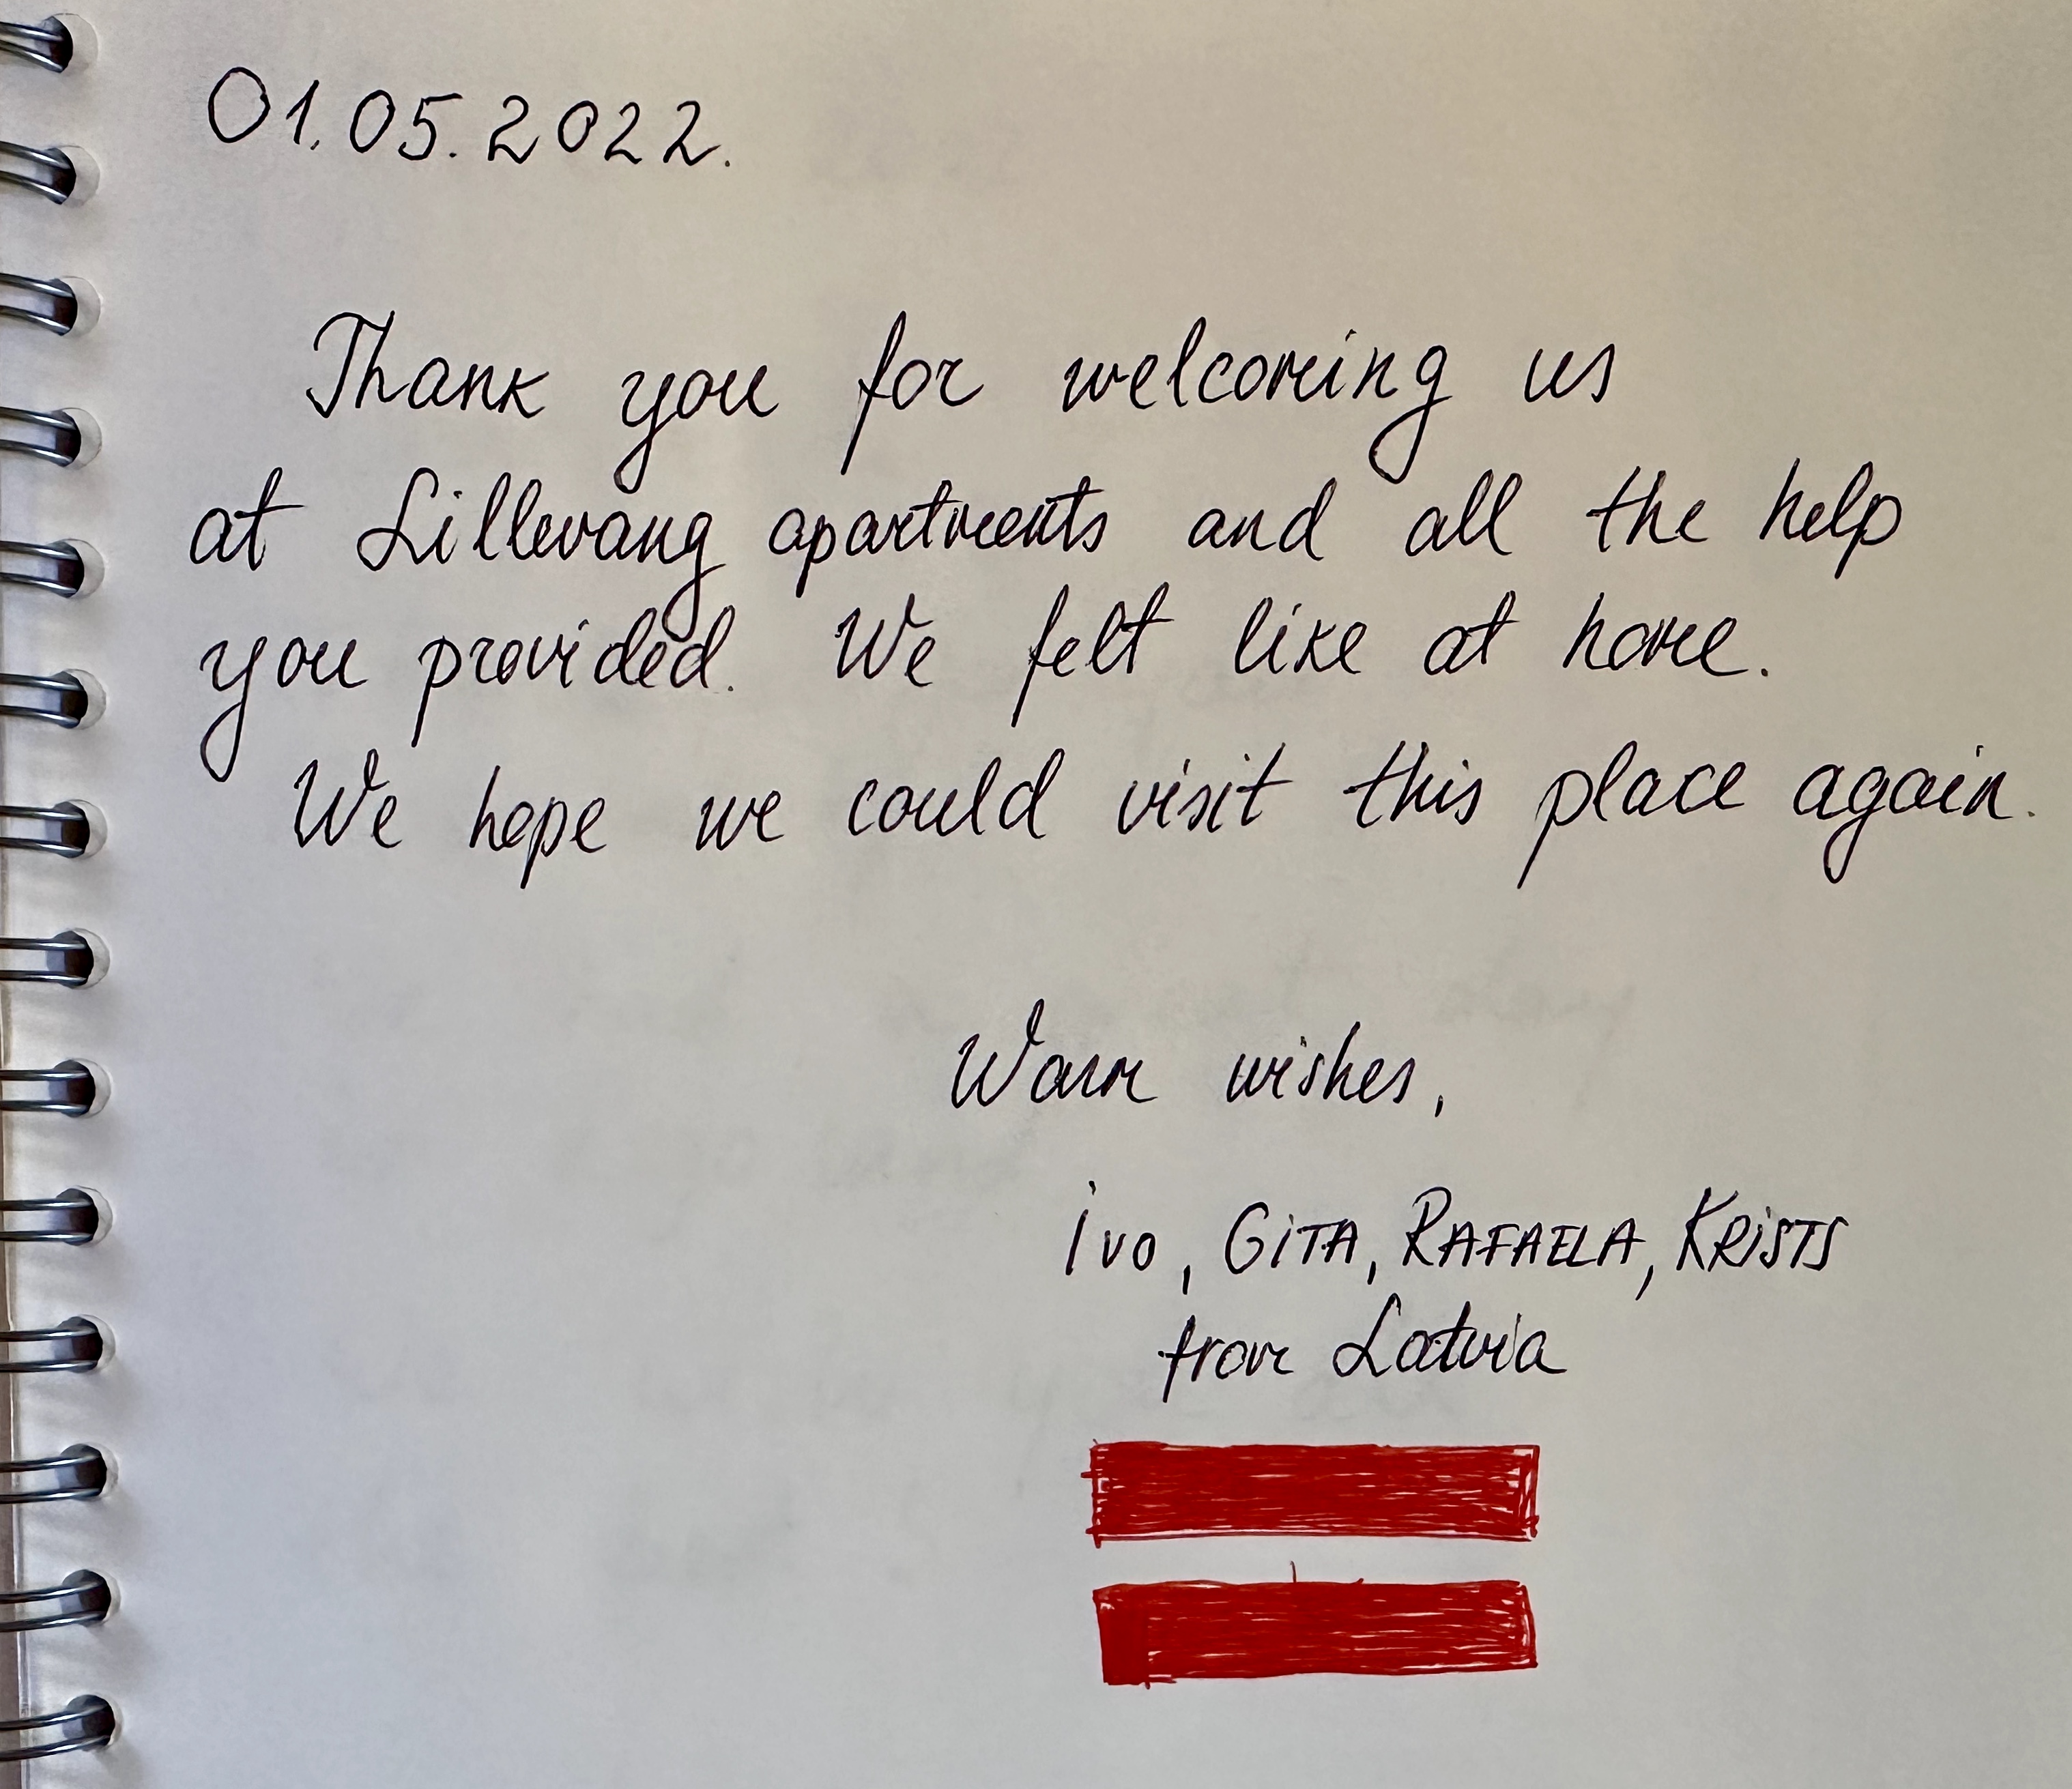 01.05.2022.
Thank you for welcoming us
at Lillevang apartments and all the help
you provided. We felt like at home.
We hope we could visit this place again.
Warm wishes,
Ivo, GITA, RAFAELA, KRISTS
from Latvia